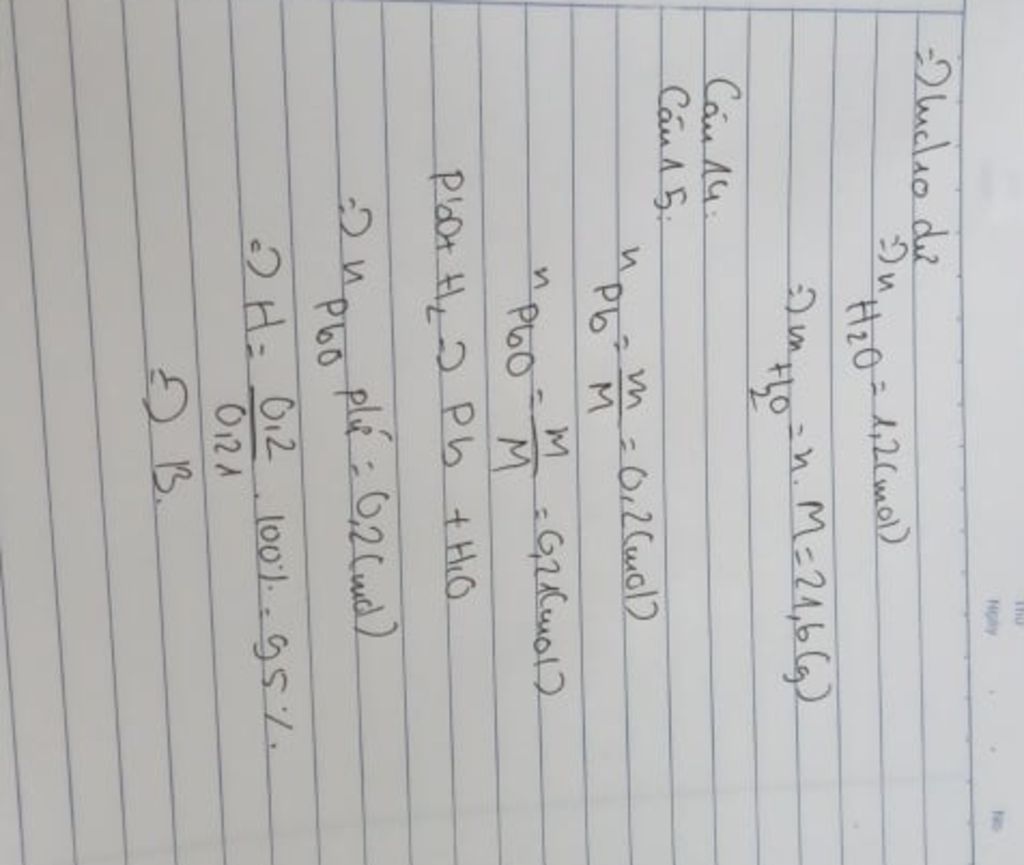 => hidro dư
=> n H₂O = 1,2 (mol)
=> m H₂O = n. M = 21,6 (g)
Câu 14:
Câu 15:
n Pb = m/M = 0,2 (mol)
n PbO = m/M = 0,21 (mol)
PbO + H₂ -> Pb + H₂O
=> n PbO pứ = 0,2 (mol)
=> H = 0,2/0,21 . 100% = 95%.
=> B.
Thứ
Ngày . . No